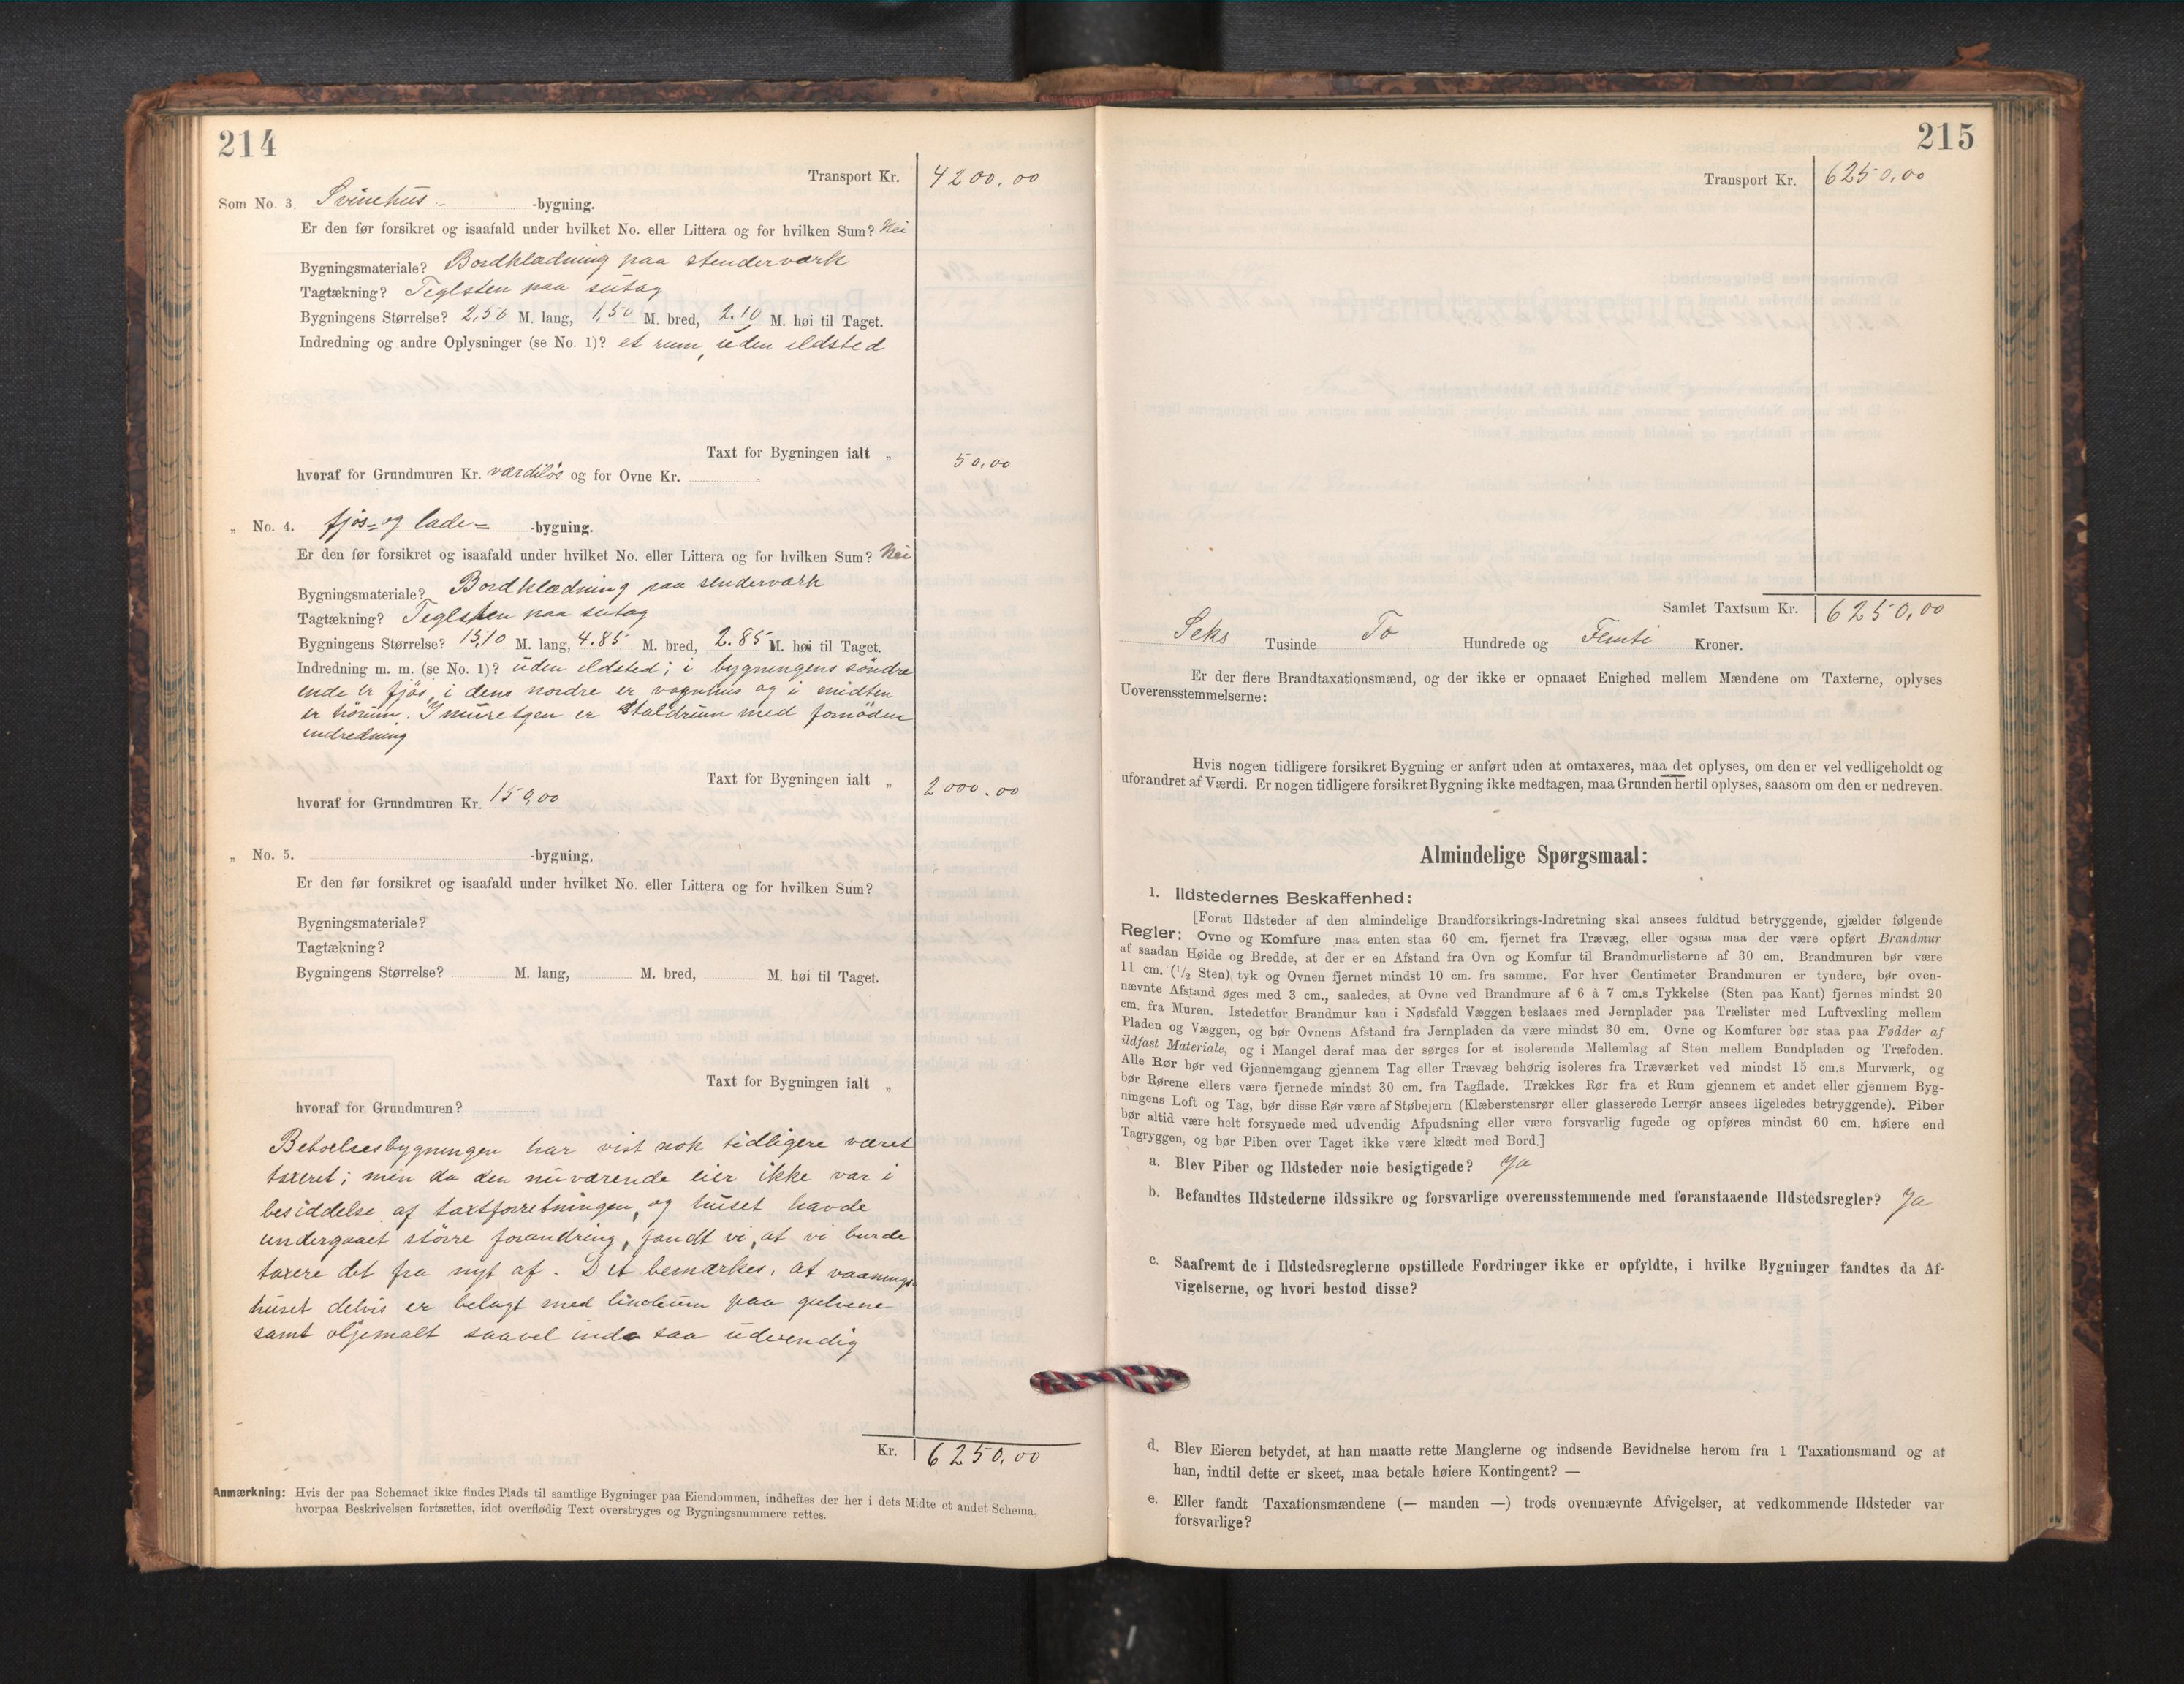 214
Transport Kr. 4200,00
Som No. 3. Svinehus -bygning.
Er den før forsikret og isaafald under hvilket No. eller Littera og for hvilken Sum? Nei
Bygningsmateriale? Bordklædning paa stenderværk
Tagtækning? Teglsten paa sutag
Bygningens Størrelse? 2,50 M. lang, 1,50 M. bred, 2.10 M. høi til Taget.
Indredning og andre Oplysninger (se No. 1)? et rum, uden ildsted
Taxt for Bygningen ialt „ 50,00
hvoraf for Grundmuren Kr. værdiløs og for Ovne Kr. „
„ No. 4. fjøs- og lade- -bygning.
Er den før forsikret og isaafald under hvilket No. eller Littera og for hvilken Sum? Nei
Bygningsmateriale? Bordklædning paa stenderværk
Tagtækning? Teglsten paa sutag
Bygningens Størrelse? 15,10 M. lang, 4.85 M. bred, 2.85 M. høi til Taget.
Indredning m. m. (se No. 1)? uden ildsted; i bygningens søndre
ende er fjøs, i dens nordre er vognhus og i midten
er hørum. I muretgen er Staldrum med fornøden
indredning
Taxt for Bygningen ialt „ 2000.00
hvoraf for Grundmuren Kr. 150,00
„ No. 5. -bygning,
Er den før forsikret og isaafald under hvilket No. eller Littera og for hvilken Sum?
Bygningsmateriale?
Tagtækning?
Bygningens Størrelse? M. lang, M. bred, M. høi til Taget.
Taxt for Bygningen ialt „
hvoraf for Grundmuren?
Beboelsesbygningen har vist nok tidligere været
taxeret; men da den nuværende eier ikke var i
besiddelse af taxtforretningen, og huset havde
undergaaet større forandring, fandt vi, at vi burde
taxere det fra nyt af. Det bemærkes, at vaanings-
huset delvis er belagt med linoleum paa gulvene
samt oljemalt saavel ind- saa udvendig
Kr. 6250,00
Anmærkning: Hvis der paa Schemaet ikke findes Plads til samtlige Bygninger paa Eiendommen, indheftes der her i dets Midte et andet Schema,
hvorpaa Beskrivelsen fortsættes, idet overflødig Text overstryges og Bygningsnummere rettes.
215
Transport Kr. 6250,00
Samlet Taxtsum Kr. 6250,00
Seks Tusinde To Hundrede og Femti Kroner.
Er der flere Brandtaxationsmænd, og der ikke er opnaaet Enighed mellem Mændene om Taxterne, oplyses
Uoverensstemmelserne:
Hvis nogen tidligere forsikret Bygning er anført uden at omtaxeres, maa det oplyses, om den er vel vedligeholdt og
uforandret af Værdi. Er nogen tidligere forsikret Bygning ikke medtagen, maa Grunden hertil oplyses, saasom om den er nedreven.
Almindelige Spørgsmaal:
1. Ildstedernes Beskaffenhed:
[Forat Ildsteder af den almindelige Brandforsikrings-Indretning skal ansees fuldtud betryggende, gjælder følgende
Regler: Ovne og Komfure maa enten staa 60 cm. fjernet fra Trævæg, eller ogsaa maa der være opført Brandmur
af saadan Høide og Bredde, at der er en Afstand fra Ovn og Komfur til Brandmurlisterne af 30 cm. Brandmuren bør være
11 cm. (1/2 Sten) tyk og Ovnen fjernet mindst 10 cm. fra samme. For hver Centimeter Brandmuren er tyndere, bør oven-
nævnte Afstand øges med 3 cm., saaledes, at Ovne ved Brandmure af 6 à 7 cm.s Tykkelse (Sten paa Kant) fjernes mindst 20
cm. fra Muren. Istedetfor Brandmur kan i Nødsfald Væggen beslaaes med Jernplader paa Trælister med Luftvexling mellem
Pladen og Væggen, og bør Ovnens Afstand fra Jernpladen da være mindst 30 cm. Ovne og Komfurer bør staa paa Fødder af
ildfast Materiale, og i Mangel deraf maa der sørges for et isolerende Mellemlag af Sten mellem Bundpladen og Træfoden.
Alle Rør bør ved Gjennemgang gjennem Tag eller Trævæg behørig isoleres fra Træværket ved mindst 15 cm.s Murværk, og
bør Rørene ellers være fjernede mindst 30 cm. fra Tagflade. Trækkes Rør fra et Rum gjennem et andet eller gjennem Byg-
ningens Loft og Tag, bør disse Rør være af Støbejern (Klæberstensrør eller glasserede Lerrør ansees ligeledes betryggende). Piber
bør altid være helt forsynede med udvendig Afpudsning eller være forsvarlig fugede og opføres mindst 60 cm. høiere end
Tagryggen, og bør Piben over Taget ikke være klædt med Bord.]
a. Blev Piber og Ildsteder nøie besigtigede? Ja
b. Befandtes Ildstederne ildssikre og forsvarlige overensstemmende med foranstaaende Ildstedsregler? Ja
c. Saafremt de i Ildstedsreglerne opstillede Fordringer ikke er opfyldte, i hvilke Bygninger fandtes da Af-
vigelserne, og hvori bestod disse?
d. Blev Eieren betydet, at han maatte rette Manglerne og indsende Bevidnelse herom fra 1 Taxationsmand og at
han, indtil dette er skeet, maa betale høiere Kontingent? —
e. Eller fandt Taxationsmændene (— manden —) trods ovennævnte Afvigelser, at vedkommende Ildsteder var
forsvarlige?